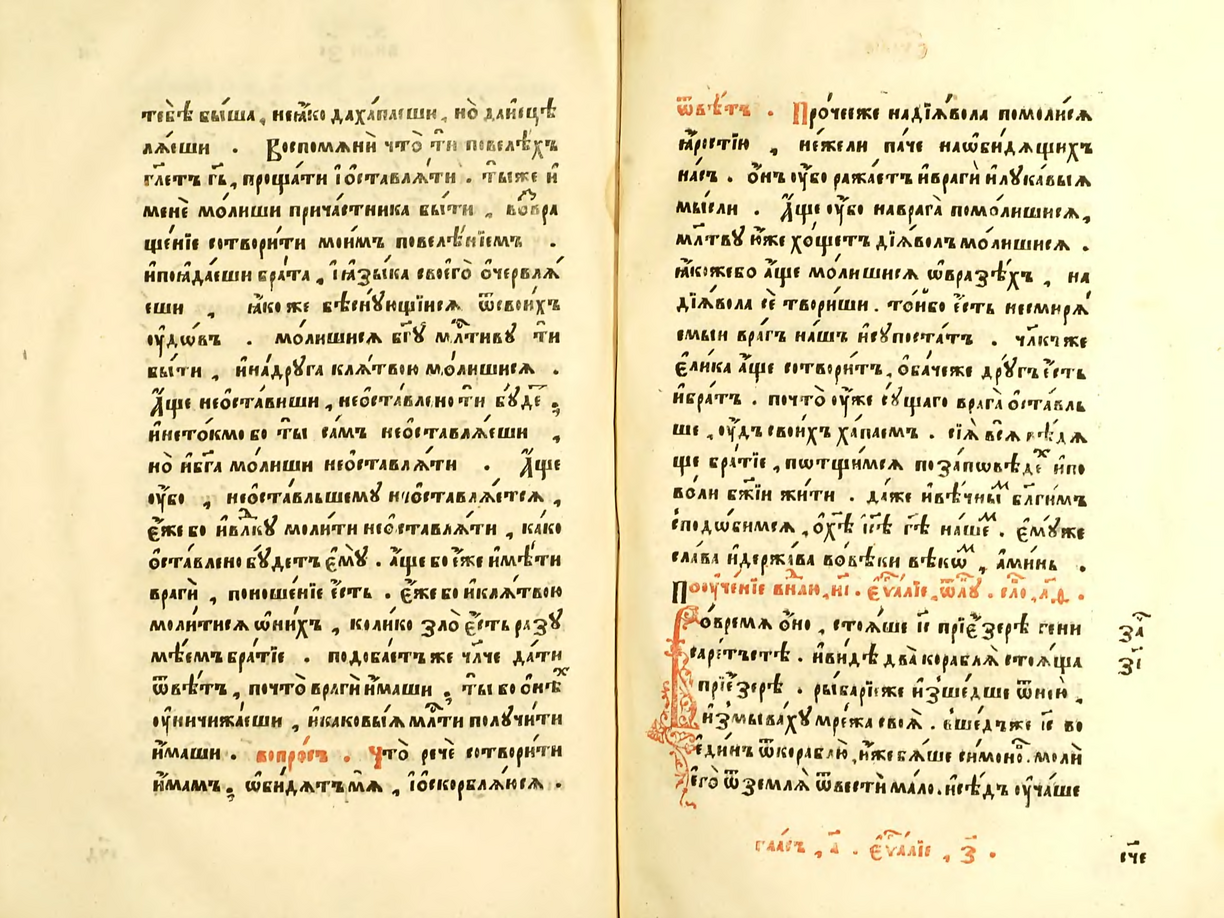 тебѣ быша, неꙗ҆ко дахапаеши, но даи҆сцѣ
лѧеши . Воспомѧни что ти повелѣхъ
гл҃етъ гь҃, прощати і҆о҆ставлѧти . тыже и҆
мене молиши причастника быти , во̾вра
щенїе сотворити моимъ повелѣнїемъ .
и҆поꙗ҆даеши брата , і҆ꙗ҆зыка своего о҆червлѧ
еши , ꙗ҆коже бѣснꙋющїисѧ ѿсвоихъ
оу҆дѡвъ . молишисѧ бг҃ꙋ мл҃тивꙋ ти
быти , и҆надрꙋга клѧтвою молишисѧ .
А҆ще неѡ҆ставиши , неѡ҆ставлено ти бꙋде ,
и҆нетокмо бо ты самъ неѡ҆ставлѧеши ,
но и҆бг҃а молиши неѡ҆ставлѧти . А҆ще
оу҆бо , неѡ҆ставльшемꙋ неѡ҆ставлѧетсѧ ,
є҆же бо и҆влⷣкꙋ молити неѡ҆ставлѧти , како
о҆ставлено бꙋдетъ є҆мꙋ . а҆ще бо є҆же и҆мѣти
враги , поношенїе є҆сть . є҆же бо и҆клѧтвою
молитисѧ ѡ҆нихъ , колико зло є҆сть разꙋ
мѣемъ братїе . подобаетъже чл҃че дати
ѿвѣтъ , почто враги и҆маши , ты бо о҆нѣⷯ
оу҆ничижаеши , и҆каковыѧ мл҃ти полꙋчити
и҆маши . вопросъ . Что рече сотворити
и҆мамъ, ѡ҆бидѧтъ мѧ , і҆о҆скорблѧюсѧ .
ѿвѣтъ . Прочееже надїѧвола помолисѧ
ꙗ҆ростїю , нежели паче наѡ҆бидѧщихъ
насъ . о҆нъ оу҆бо ражаетъ и҆враги и҆лꙋкавыѧ
мысли . А҆ще оу҆бо наврага помолишисѧ,
мл҃твꙋ ю҆же хощетъ дїѧволъ молишисѧ .
ꙗ҆кожебо а҆ще молишисѧ ѡ҆вразѣхъ , на
дїѧвола се твориши . тойбо є҆сть несмирѧ
емыи врагъ нашъ и҆сꙋпостатъ . чл҃кчже
є҆лика а҆ще сотворитъ, о҆бачеже дрꙋгъ є҆сть
и҆братъ . почто оу҆же сꙋщаго врага о҆ставль
ше , оу҆дъ своихъ хапаемъ . сїѧ всѧ вѣдѧ
ще братїе , пѡтщимсѧ по заповѣдеⷯ и҆по
воли бж҃їи жити . даже и҆вѣчныⷨ бл҃гимъ
сподѡбимсѧ , о҆хѣ і҆с҃ѣ г҃ѣ нашеⷨ . є҆мꙋже
слава и҆держава вовѣки вѣкѡⷨ , а҆минь .
Пооу҆ченїе внⷣлю , и҃і . є҆ѵⷢ҇алїе , ѿлꙋ . сло , л҃ѳ .
Вовремѧ о҆но , стоѧше і҆с҃ прїє҆зерѣ гени
саретъстѣ . и҆видѣ два кораблѧ стоѧща
прїє҆зерѣ . рыбарїеже и҆зшедше ѿнею ,
и҆змывахꙋ мрежа своѧ . вшедъже і҆с҃ во
единъ ѿкораблю, и҆же бѧше симоноⷡ . моли
его ѿземлѧ ѿвести мало . и҆сѣдъ оу҆чаше
за҃ⷱ
з҃і
гласъ , а҃ . є҆ѵⷢ҇алїе , з҃ .
с҃че